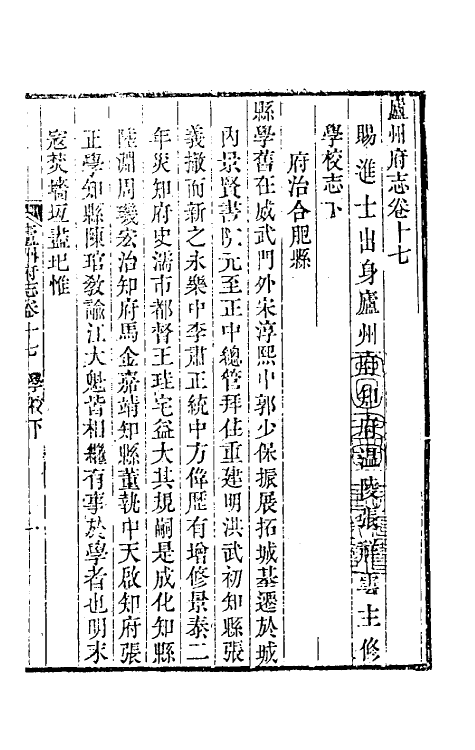 廬州府志卷十七
賜進士出身廬州府知府温陵張祥雲主修
學校志下
府治合肥縣
縣學舊在威武門外宋淳熙中郭少保振展拓城基遷於城
內景賢書院元至正中總管拜住重建明洪武初知縣張
義撤而新之永樂中李肅正統中方偉歷有增修景泰二
年災知府史濡市都督王珪宅益大其規嗣是成化知縣
陸淵周羲宏治知府馬金嘉靖知縣董執中天啟知府張
正學知縣陳琯敎諭江大魁皆相繼有事於學者也明末
寇焚墻垣盡圯惟
廬州府志卷十七 學校下 一